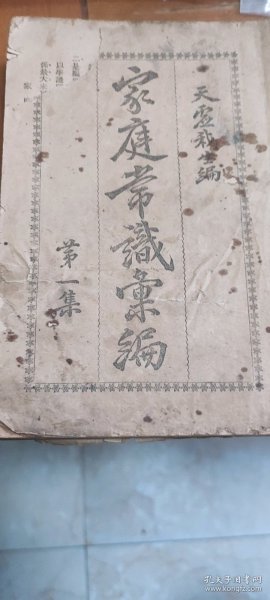 天虛我生編
家庭常識彙編
第一集
孔夫子旧书网